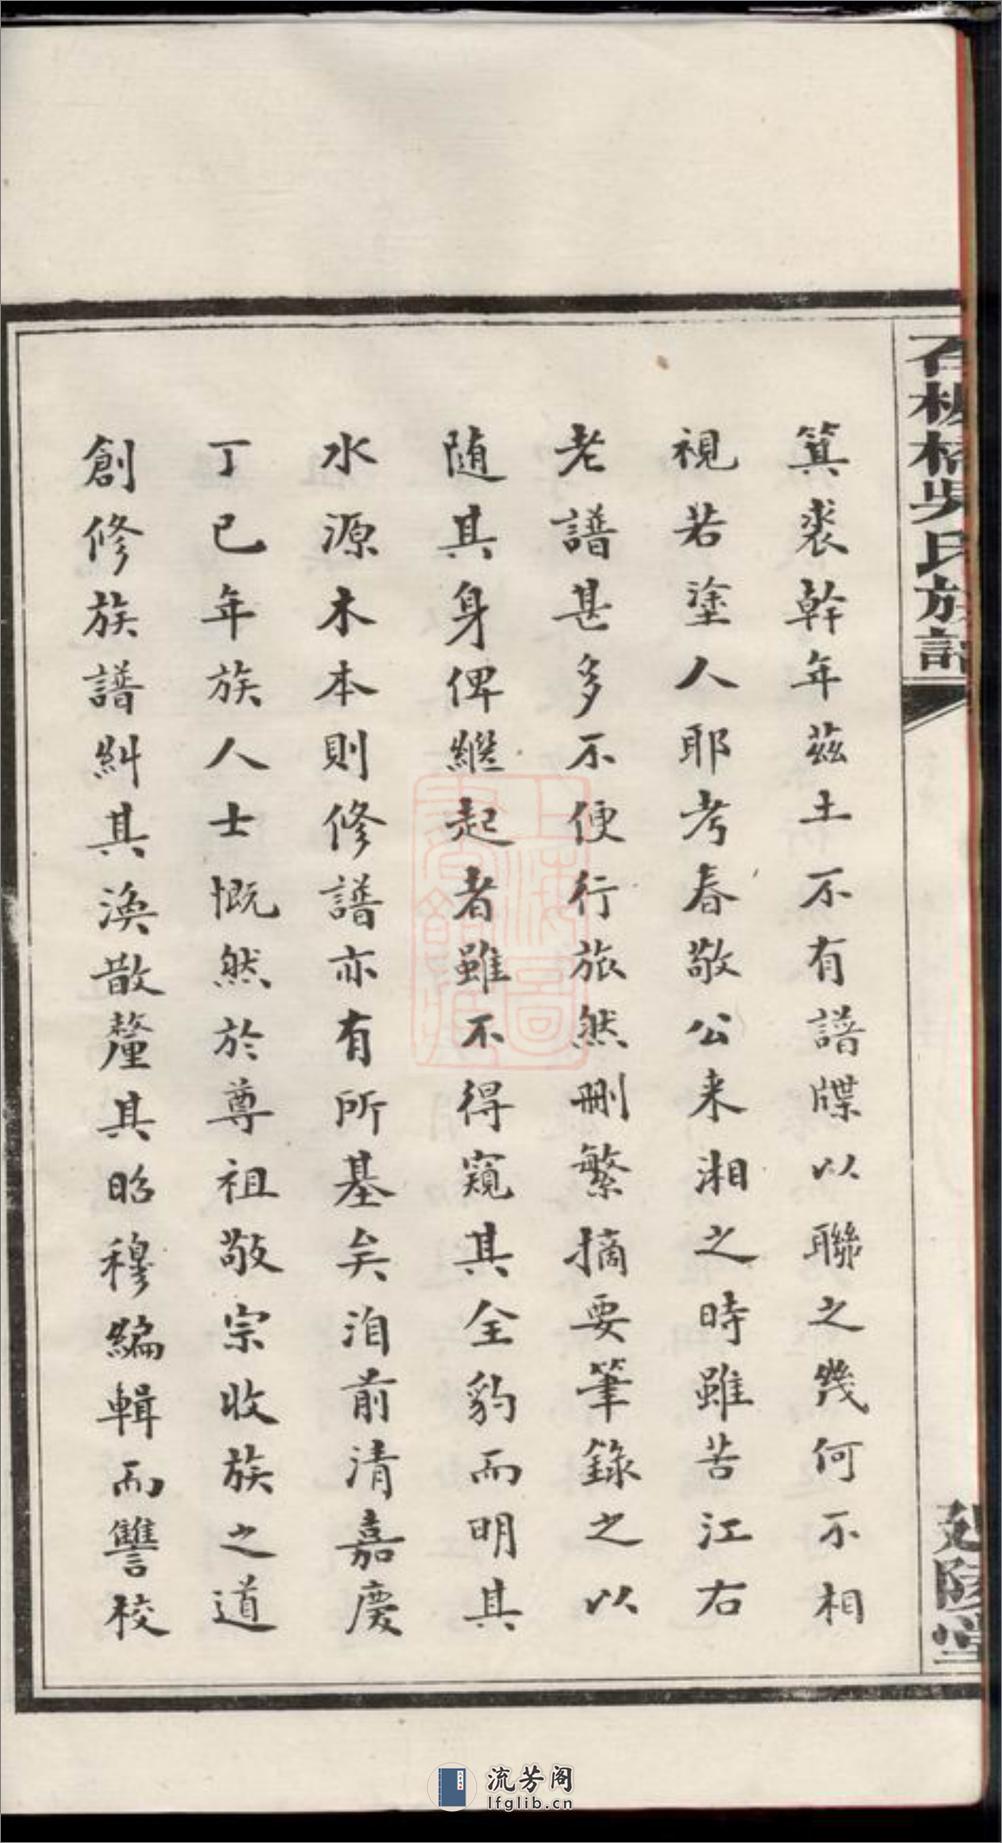 石板橋吳氏族譜
延陵堂
箕裘幹年茲土不有譜牒以聯之幾何不相
視若塗人耶考春敬公来湘之時雖苦江右
老譜甚多不便行旅然刪繁摘要筆錄之以
随其身俾繼起者雖不得窺其全豹而明其
水源木本則修譜亦有所基矣洎前清嘉慶
丁巳年族人士慨然於尊祖敬宗收族之道
創修族譜糾其渙散釐其昭穆編輯而讐校
上海圖
書館藏
流芳阁
lfglib.cn